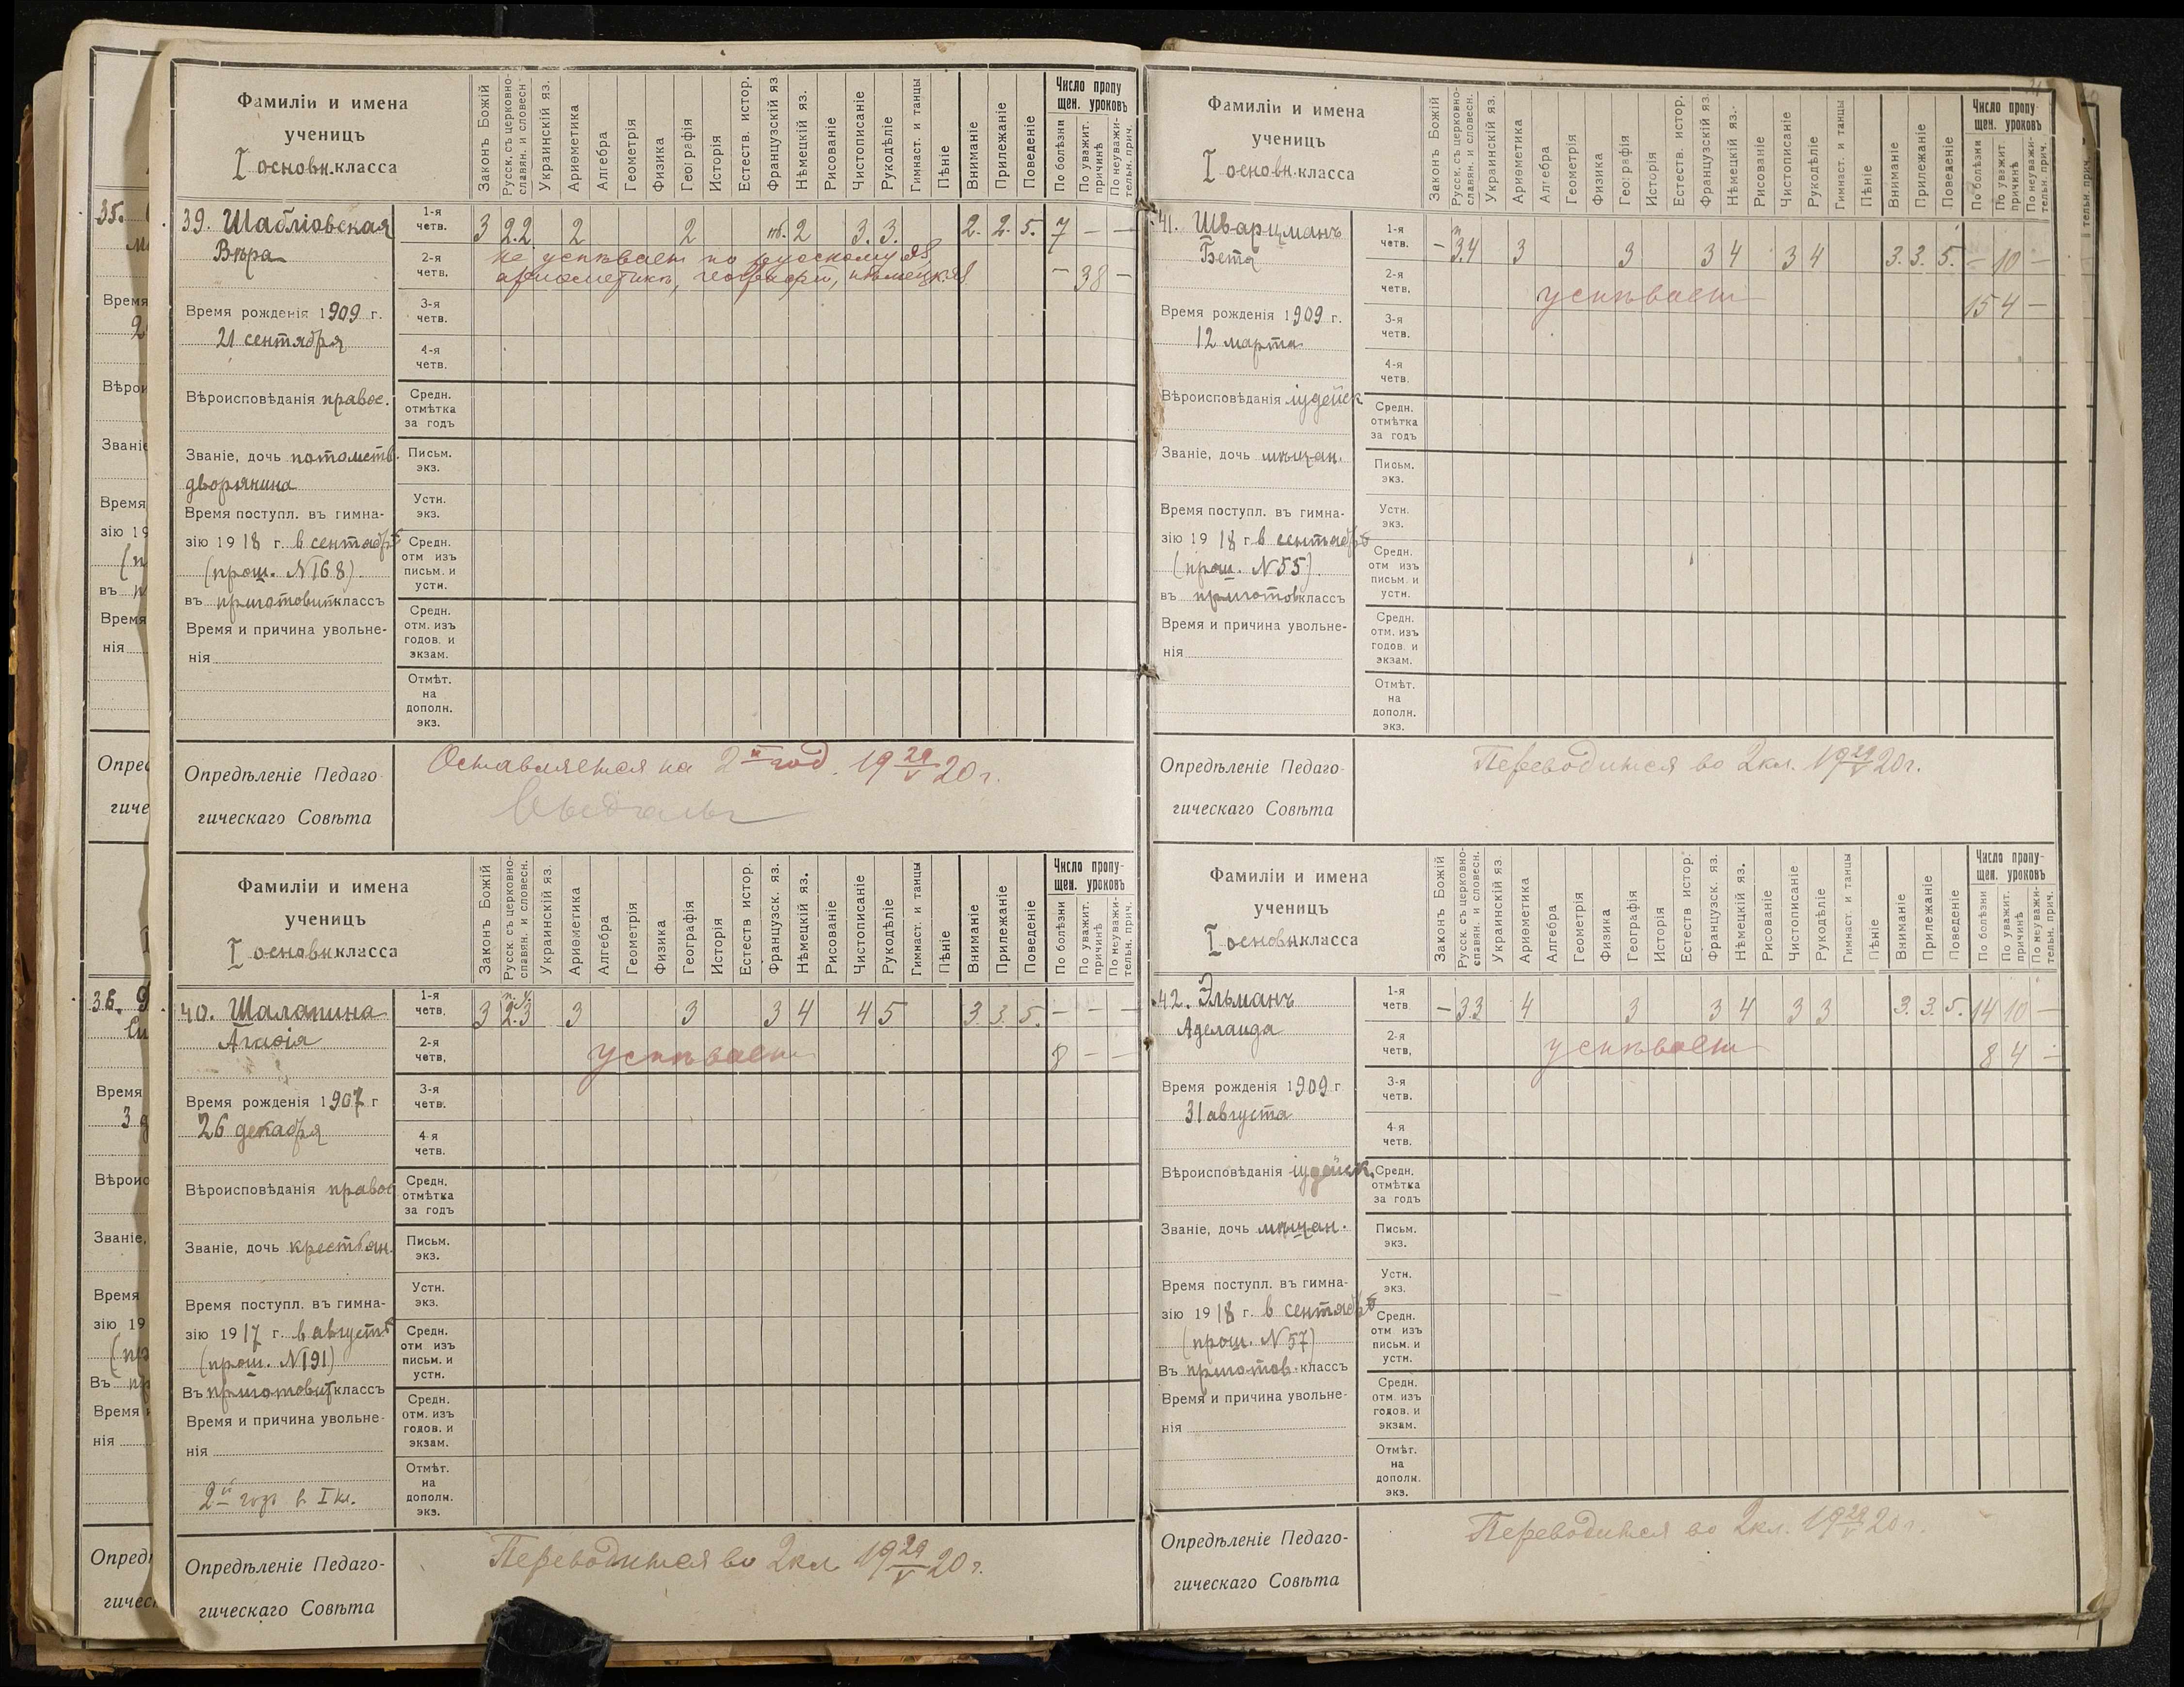 Фамиліи и имена
ученицъ
I основн. класса
Законъ Божій
Русск. съ церковно-славян. и словесн.
Украинскій яз.
Ариѳметика
Алгебра
Геометрія
Физика
Географія
Исторія
Естеств. истор.
Французскій яз.
Нѣмецкій яз.
Рисованіе
Чистописаніе
Рукодѣліе
Гимнаст. и танцы
Пѣніе
Вниманіе
Прилежаніе
Поведеніе
Число пропу
щен. уроковъ
По болѣзни
По уважит. причинѣ
По неуважи-тельн. прич.
39. Шабліовская
Вѣра
1-я четв. 3 2.2 2 2 2 3. 3. 2. 2. 5. 7 – –
2-я четв. не успѣвает по русскому яз,
ариѳметикѣ, географіи, нѣмецк. яз – 38 –
3-я четв.
4-я четв.
Время рожденія 1909 г.
21 сентября
Вѣроисповѣданія правос.
Средн. отмѣтка за годъ
Званіе, дочь потомств.
дворянина
Письм. экз.
Устн. экз.
Время поступл. въ гимна-
зію 1918 г. в сентябрѣ
(прош. N168)
въ приготовит классъ
Средн. отм изъ письм. и устн.
Время и причина увольне-
нія
Средн. отм. изъ годов. и экзам.
Отмѣт. на дополн. экз.
Опредѣленіе Педаго-
гическаго Совѣта
Оставляется на 2й год. 19 29/V 20 г.
Фамиліи и имена
ученицъ
I основн класса
Законъ Божій
Русск. съ церковно-славян. и словесн.
Украинскій яз.
Ариѳметика
Алгебра
Геометрія
Физика
Географія
Исторія
Естеств истор.
Французск. яз.
Нѣмецкій яз.
Рисованіе
Чистописаніе
Рукодѣліе
Гимнаст. и танцы
Пѣніе
Вниманіе
Прилежаніе
Поведеніе
Число пропу-
щен. уроковъ
По болѣзни
По уважит. причинѣ
По неуважи-тельн. прич.
40. Шалапина
Агаѳія
1-я четв. 3 2.3 3 3 3 4 4 5 3. 3. 5. – – –
2-я четв. успѣвает 8 – –
3-я четв.
4-я четв.
Время рожденія 1907 г
26 декабря
Вѣроисповѣданія правос
Средн. отмѣтка за годъ
Званіе, дочь крестьян.
Письм. экз.
Устн. экз.
Время поступл. въ гимна-
зію 1917 г. в августѣ
(прош. N191)
Въ приготовит классъ
Средн. отм изъ письм. и устн.
Время и причина увольне-
нія
2й годъ в I кл.
Средн. отм. изъ годов. и экзам.
Отмѣт. на дополн. экз.
Опредѣленіе Педаго-
гическаго Совѣта
Переводится во 2 кл 19 29/V 20 г.
Фамиліи и имена
ученицъ
I основн. класса
Законъ Божій
Русск. съ церковно-славян. и словесн.
Украинскій яз.
Ариѳметика
Алгебра
Геометрія
Физика
Географія
Исторія
Естеств. истор.
Французскій яз.
Нѣмецкій яз.
Рисованіе
Чистописаніе
Рукодѣліе
Гимнаст. и танцы
Пѣніе
Вниманіе
Прилежаніе
Поведеніе
Число пропу-
щен. уроковъ
По болѣзни
По уважит. причинѣ
По неуважи-тельн. прич.
41. Шварцманъ
Бета
1-я четв. – 3.4 3 3 3 4 3 4 3. 3. 5. – 10 –
2-я четв. успѣвает 15 4 –
3-я четв.
4-я четв.
Время рожденія 1909 г.
12 марта
Вѣроисповѣданія іудейск
Средн. отмѣтка за годъ
Званіе, дочь мѣщан.
Письм. экз.
Устн. экз.
Время поступл. въ гимна-
зію 1918 г в сентябрѣ
(прош. N55)
въ приготов классъ
Средн. отм изъ письм. и устн.
Время и причина увольне-
нія
Средн. отм. изъ годов. и экзам.
Отмѣт. на дополн. экз.
Опредѣленіе Педаго-
гическаго Совѣта
Переводится во 2 кл. 19 29/V 20 г.
Фамиліи и имена
ученицъ
I основн класса
Законъ Божій
Русск. съ церковно-славян. и словесн.
Украинскій яз.
Ариѳметика
Алгебра
Геометрія
Физика
Географія
Исторія
Естеств истор.
Французск. яз.
Нѣмецкій яз.
Рисованіе
Чистописаніе
Рукодѣліе
Гимнаст. и танцы
Пѣніе
Вниманіе
Прилежаніе
Поведеніе
Число пропу-
щен. уроковъ
По болѣзни
По уважит. причинѣ
По неуважи-тельн. прич.
42. Эльманъ
Аделаида
1-я четв – 3.3 4 3 3 4 3 3 3. 3. 5. 14 10 –
2-я четв, успѣвает 8 4 –
3-я четв.
4-я четв.
Время рожденія 1909 г
31 августа
Вѣроисповѣданія іудейск.
Средн. отмѣтка за годъ
Званіе, дочь мѣщан.
Письм. экз.
Устн. экз.
Время поступл. въ гимна-
зію 1918 г. в сентябрѣ
(прош. N57)
Въ приготов. классъ
Средн. отм изъ письм. и устн.
Время и причина увольне-
нія
Средн. отм. изъ годов. и экзам.
Отмѣт. на дополн. экз.
Опредѣленіе Педаго-
гическаго Совѣта
Переводится во 2 кл. 19 29/V 20 г.